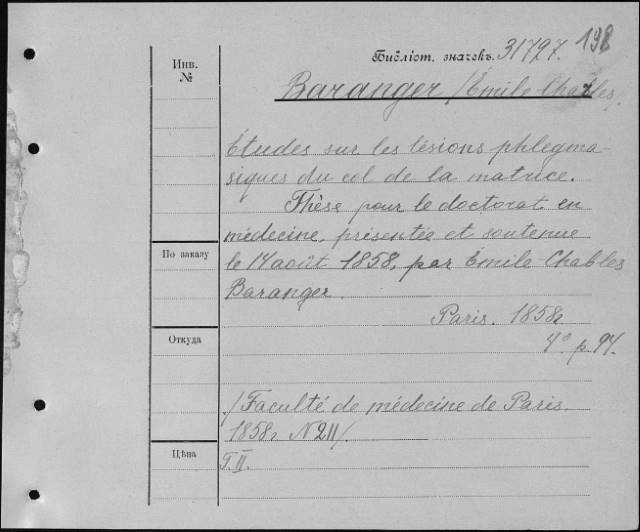 198
Библіот. значекъ. 31797.
Инв.
№
Baranger /Émile Chables/.
Études sur les lésions phlegma-
siques du col de la matrice.
Thèse pour le doctorat en
médecine, présentée et soutenue
По заказу
le 14 août 1858, par Émile-Chables
Baranger.
Paris. 1858г.
Откуда
4° p. 94.
/Faculté de médecine de Paris.
1858г. N 211/.
Цѣна
T. II.